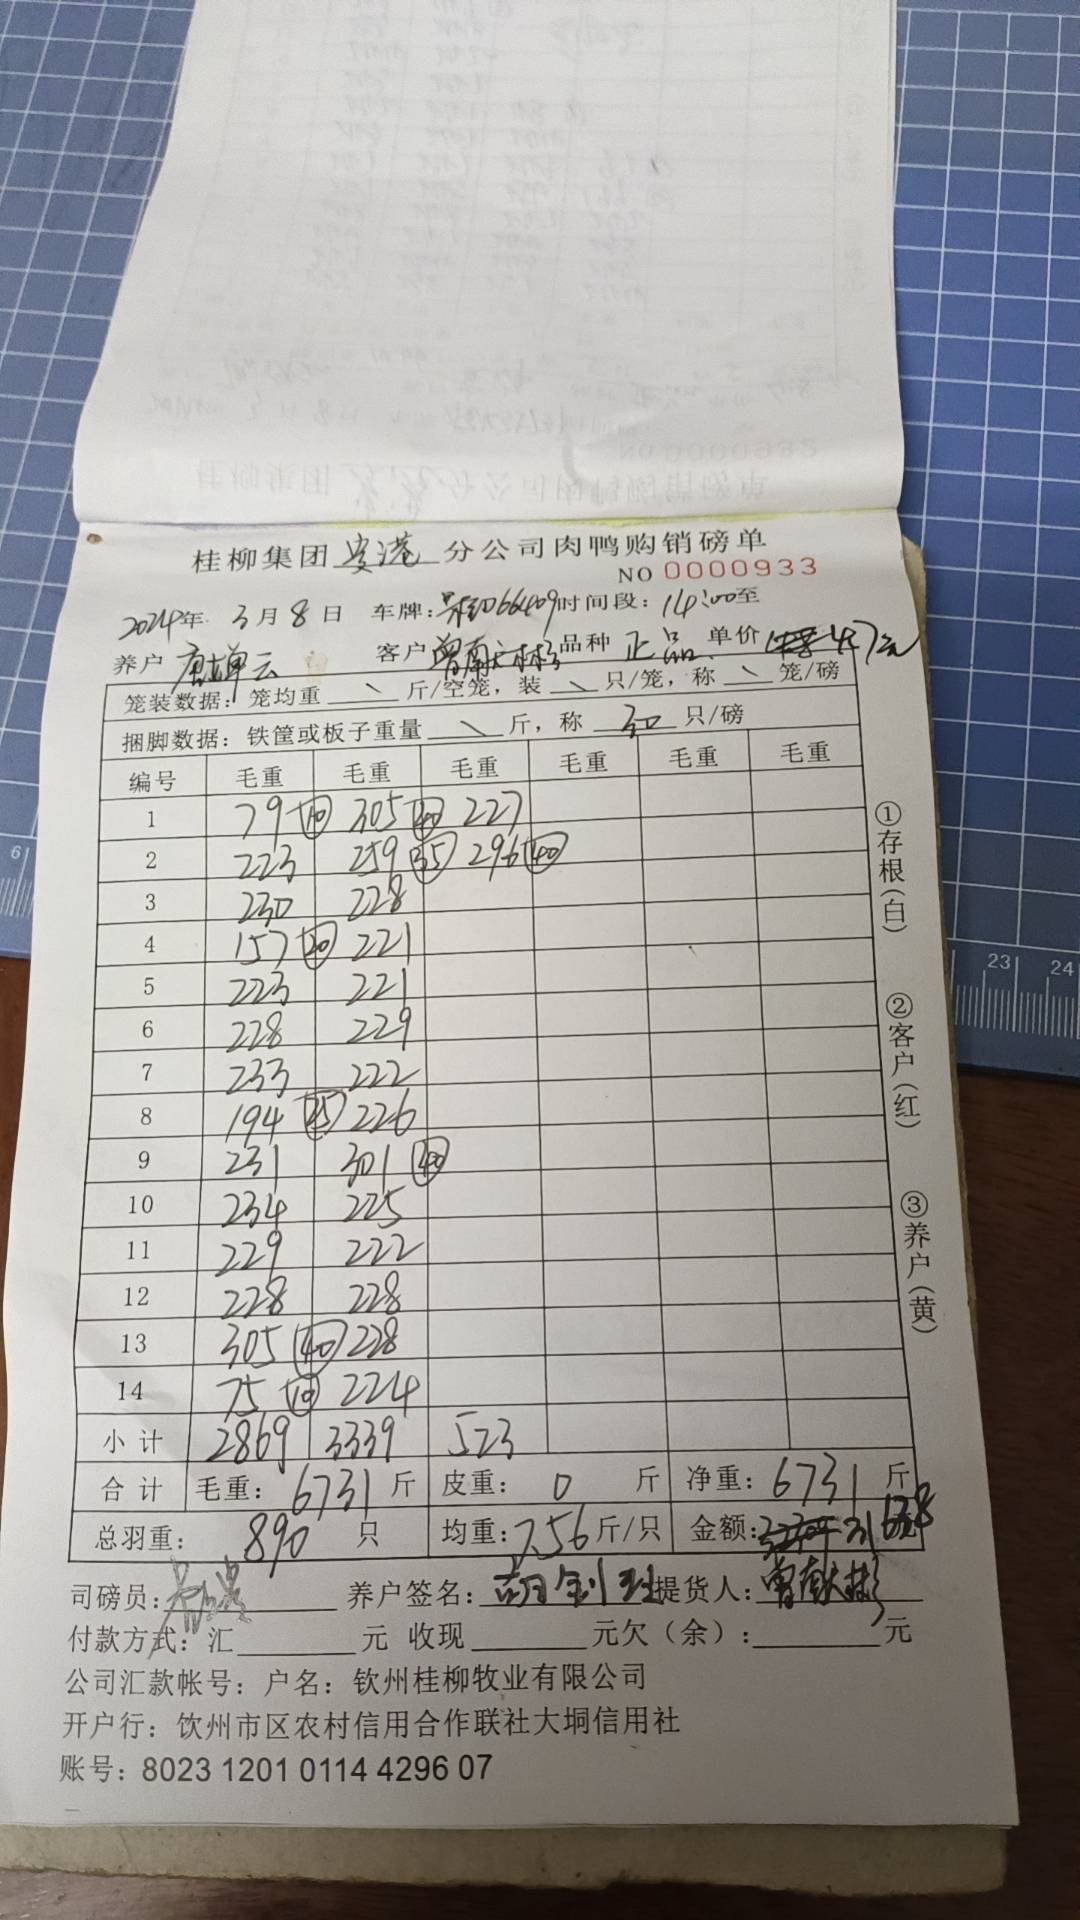 桂柳集团 分公司肉鸭购销磅单
NO 0000933
2024年 3月8日 车牌: 66409 时间段: 14:00至
养户 云 客户 曾献彬 品种 正品 单价 4.7元
笼装数据: 笼均重 \ 斤/空笼, 装 \ 只/笼, 称 \ 笼/磅
捆脚数据: 铁筐或板子重量 \ 斤, 称 30 只/磅
编号 毛重 毛重 毛重 毛重 毛重 毛重
1 79 (10) 305 (40) 227
2 223 259 (35) 296 (40)
3 230 228
4 157 (20) 221
5 223 221
6 228 229
7 233 222
8 194 (25) 226
9 231 301 (40)
10 234 225
11 229 222
12 228 228
13 305 (40) 228
14 75 (10) 224
小计 2869 3339 523
合计 毛重: 6731 斤 皮重: 0 斤 净重: 6731 斤
总羽重: 890 只 均重: 7.56 斤/只 金额:
司磅员: 养户签名: 提货人: 曾献彬
付款方式: 汇 元 收现 元欠(余): 元
公司汇款帐号: 户名: 钦州桂柳牧业有限公司
开户行: 饮州市区农村信用合作联社大垌信用社
账号: 8023 1201 0114 4296 07
①存根(白)
②客户(红)
③养户(黄)
6
23 24